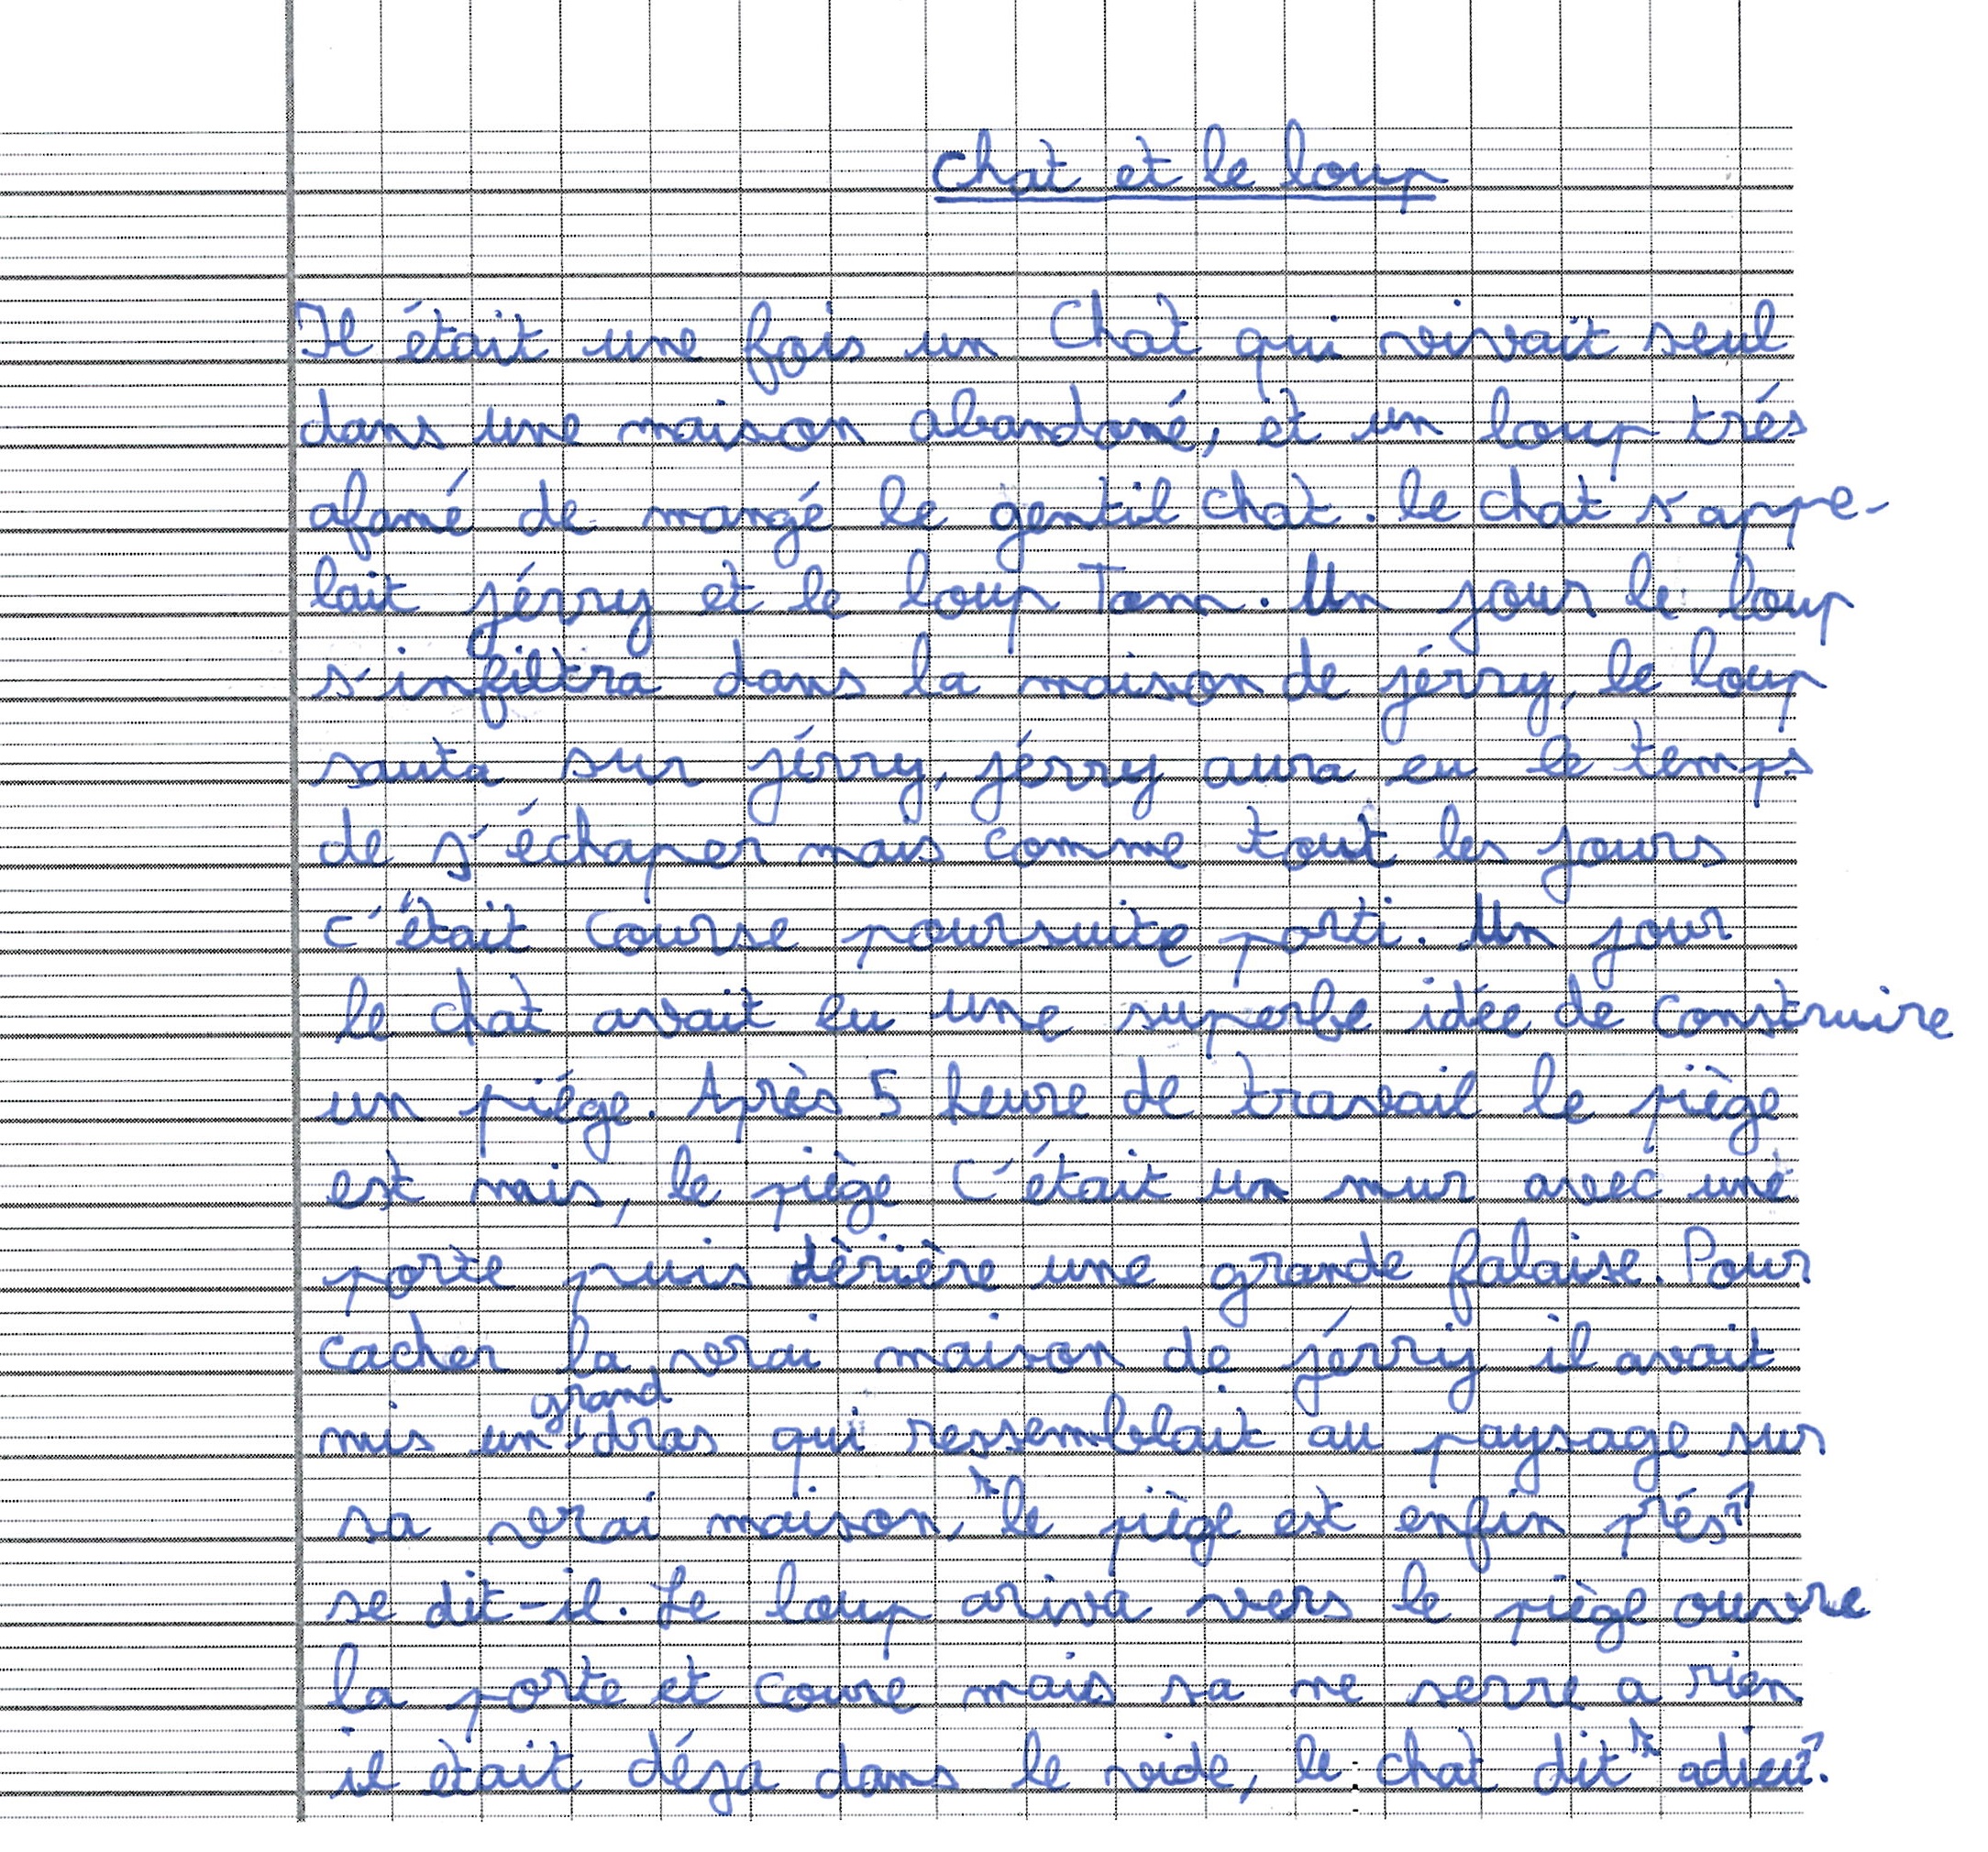 Chat et le loup
Il était une fois un Chat qui vivait seul
dans une maison abandoné, et un loup trés
afamé de mangé le gentil chat. le chat s'appe-
lait jérry et le loup Tom. Un jour le loup
s'infiltra dans la maison de jérry, le loup
sauta sur jérry, jérry aura eu le temps
de s'échaper mais comme tout les jours
c'était course poursuite parti. Un jour
le chat avait eu une superbe idée de construire
un piége. Après 5 heure de travail le piège
est mis, le piège c'était un mur avec une
porte puis dèrière une grande falaise. Pour
cacher la vrai maison de jérry il avait
mis un grand dras qui ressemblait au paysage sur
sa vrai maison, "le piège est enfin prés"
se dit-il. Le loup ariva vers le piège ouvre
la porte et coure mais sa ne serre a rien
il etait déja dans le vide, le chat dit "adieu".